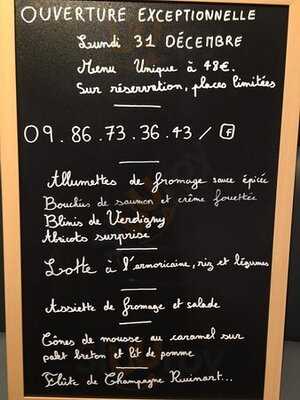 OUVERTURE EXCEPTIONNELLE
Lundi 31 DÉCEMBRE
Menu Unique à 48€.
Sur réservation, places limitées
09.86.73.36.43 / f
Allumettes de fromage sauce épicée
Bouchées de saumon et crème fouettée
Blinis de Verdigny
Abricots surprise
Lotte à l'armoricaine, riz et légumes
Assiette de fromage et salade
Cônes de mousse au caramel sur
palet breton et lit de pomme
Flûte de Champagne Ruinart...